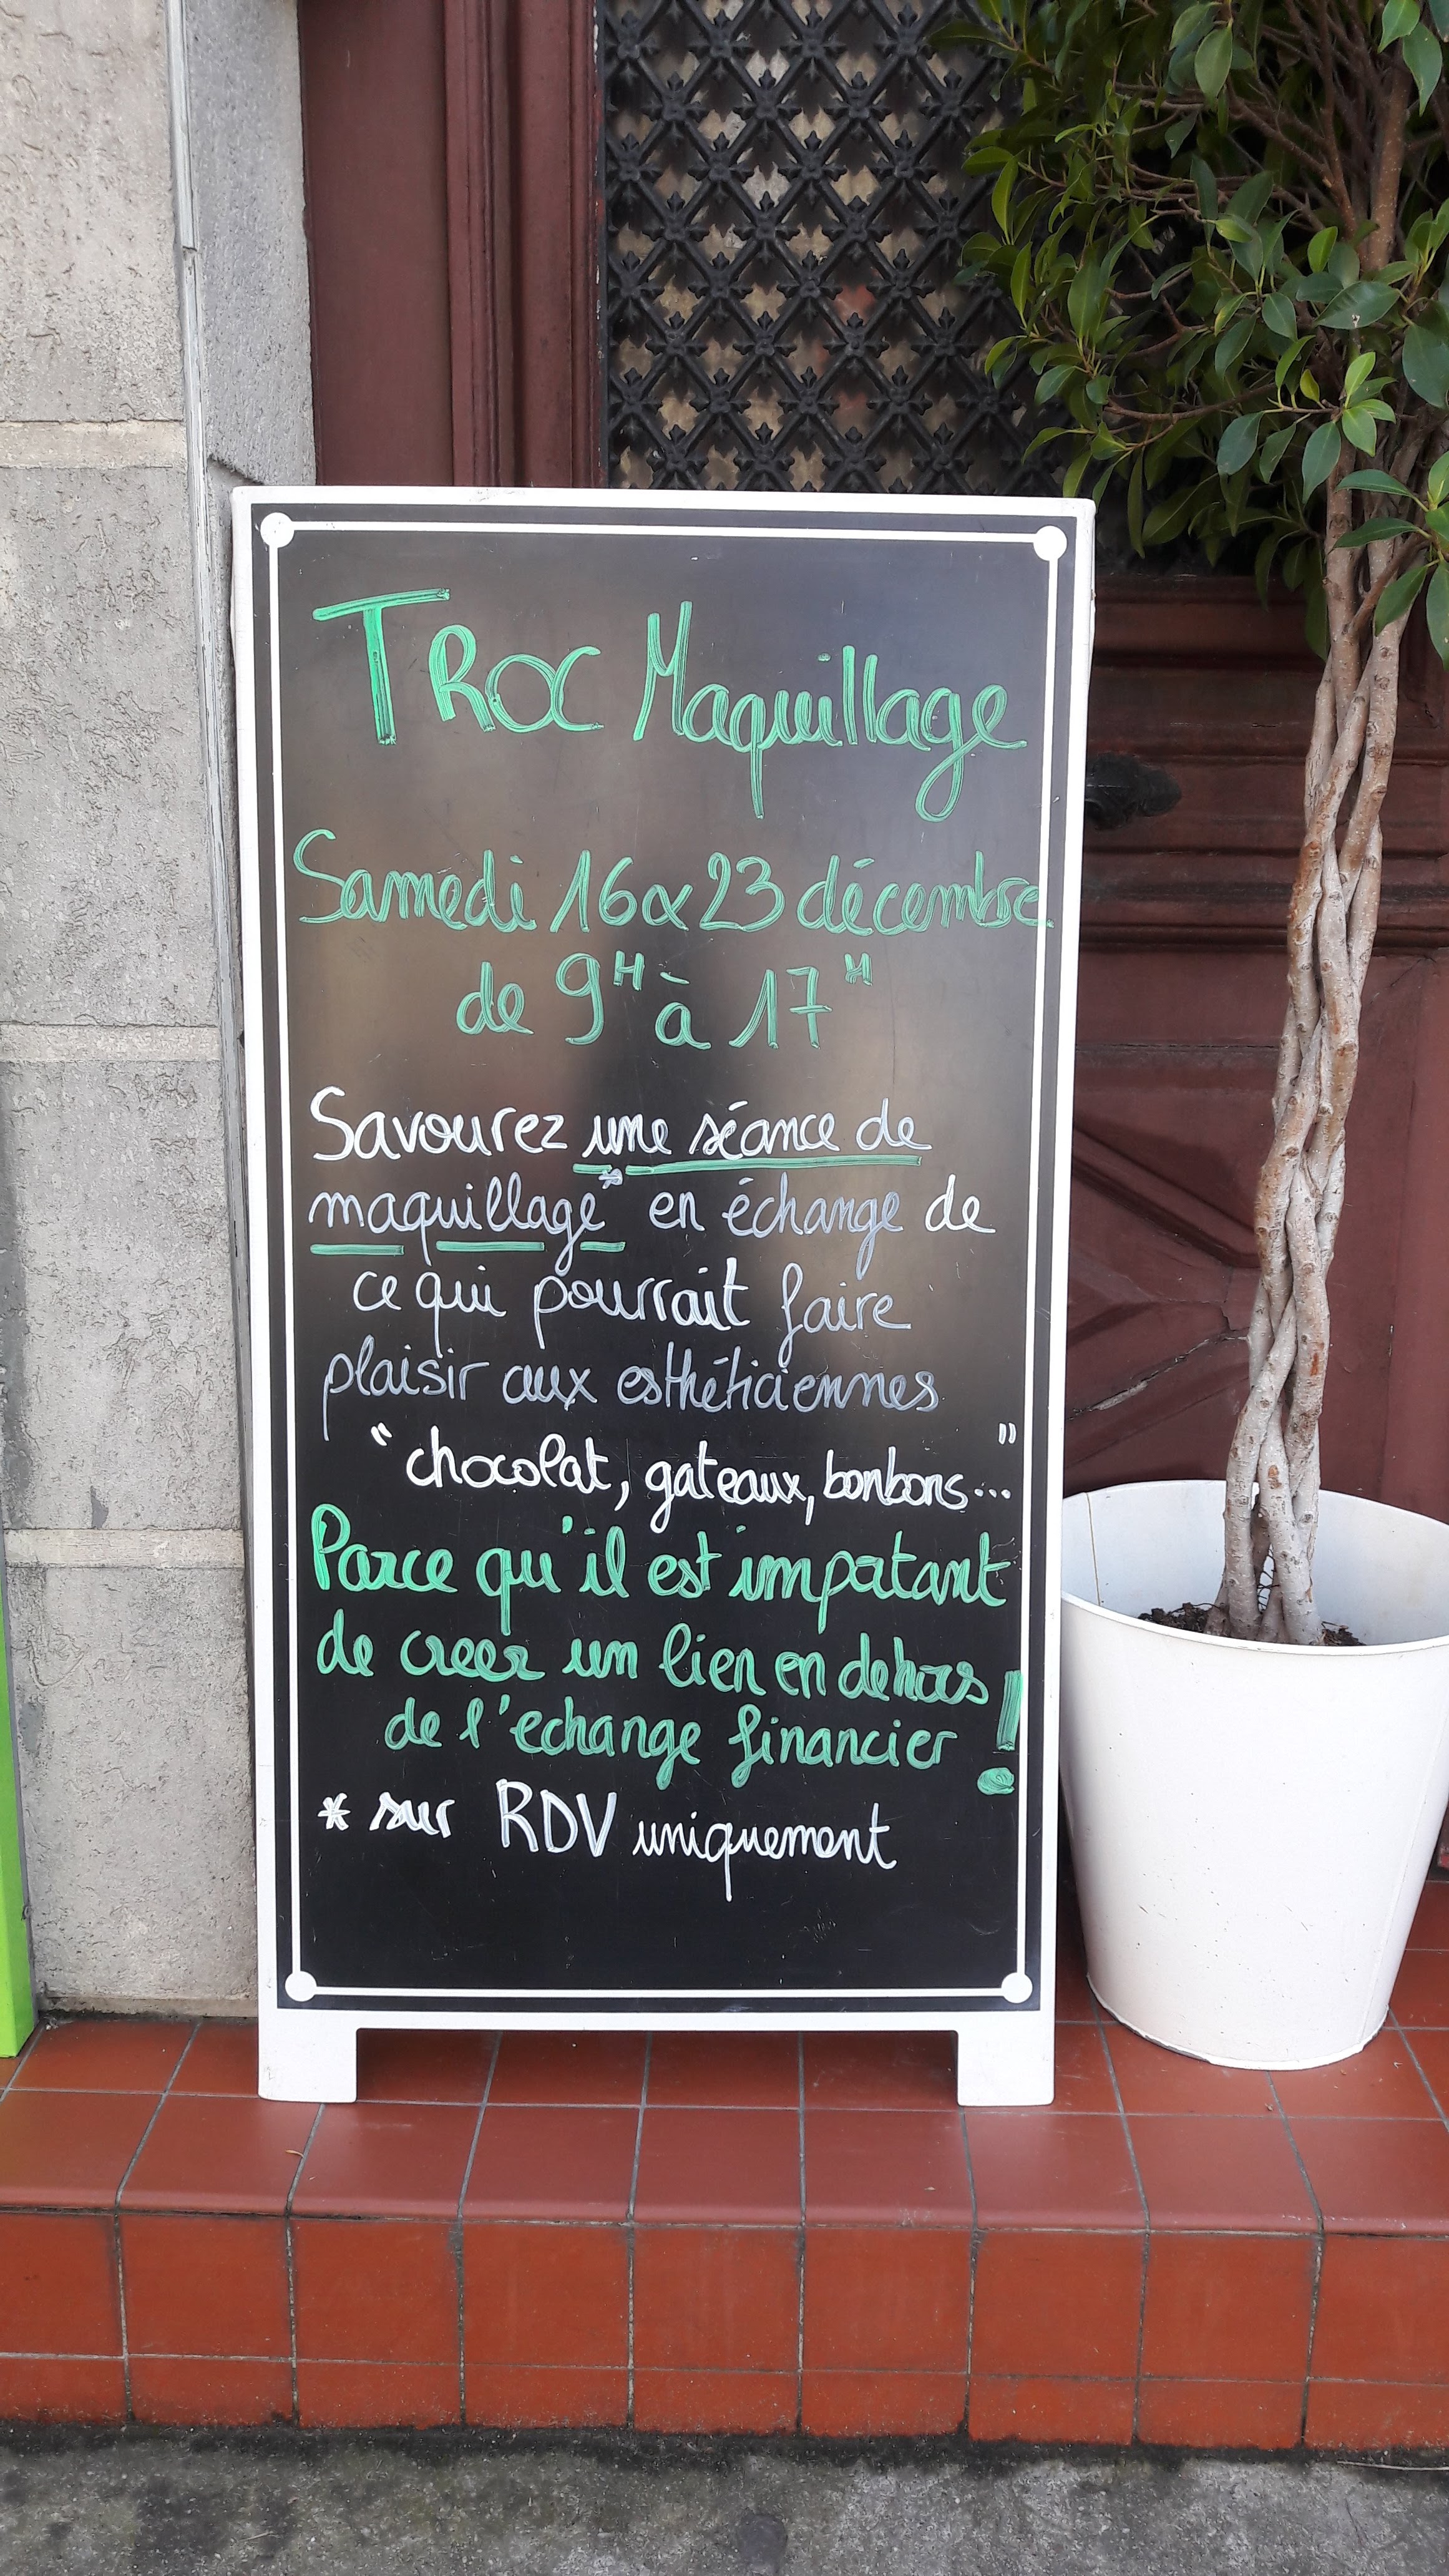 TROC Maquillage
Samedi 16 & 23 décembre
de 9H à 17H
Savourez une séance de
maquillage* en échange de
ce qui pourrait faire
plaisir aux esthéticiennes
"chocolat, gateaux, bonbons..."
Parce qu'il est important
de creer un lien en dehors
de l'echange financier !
* sur RDV uniquement